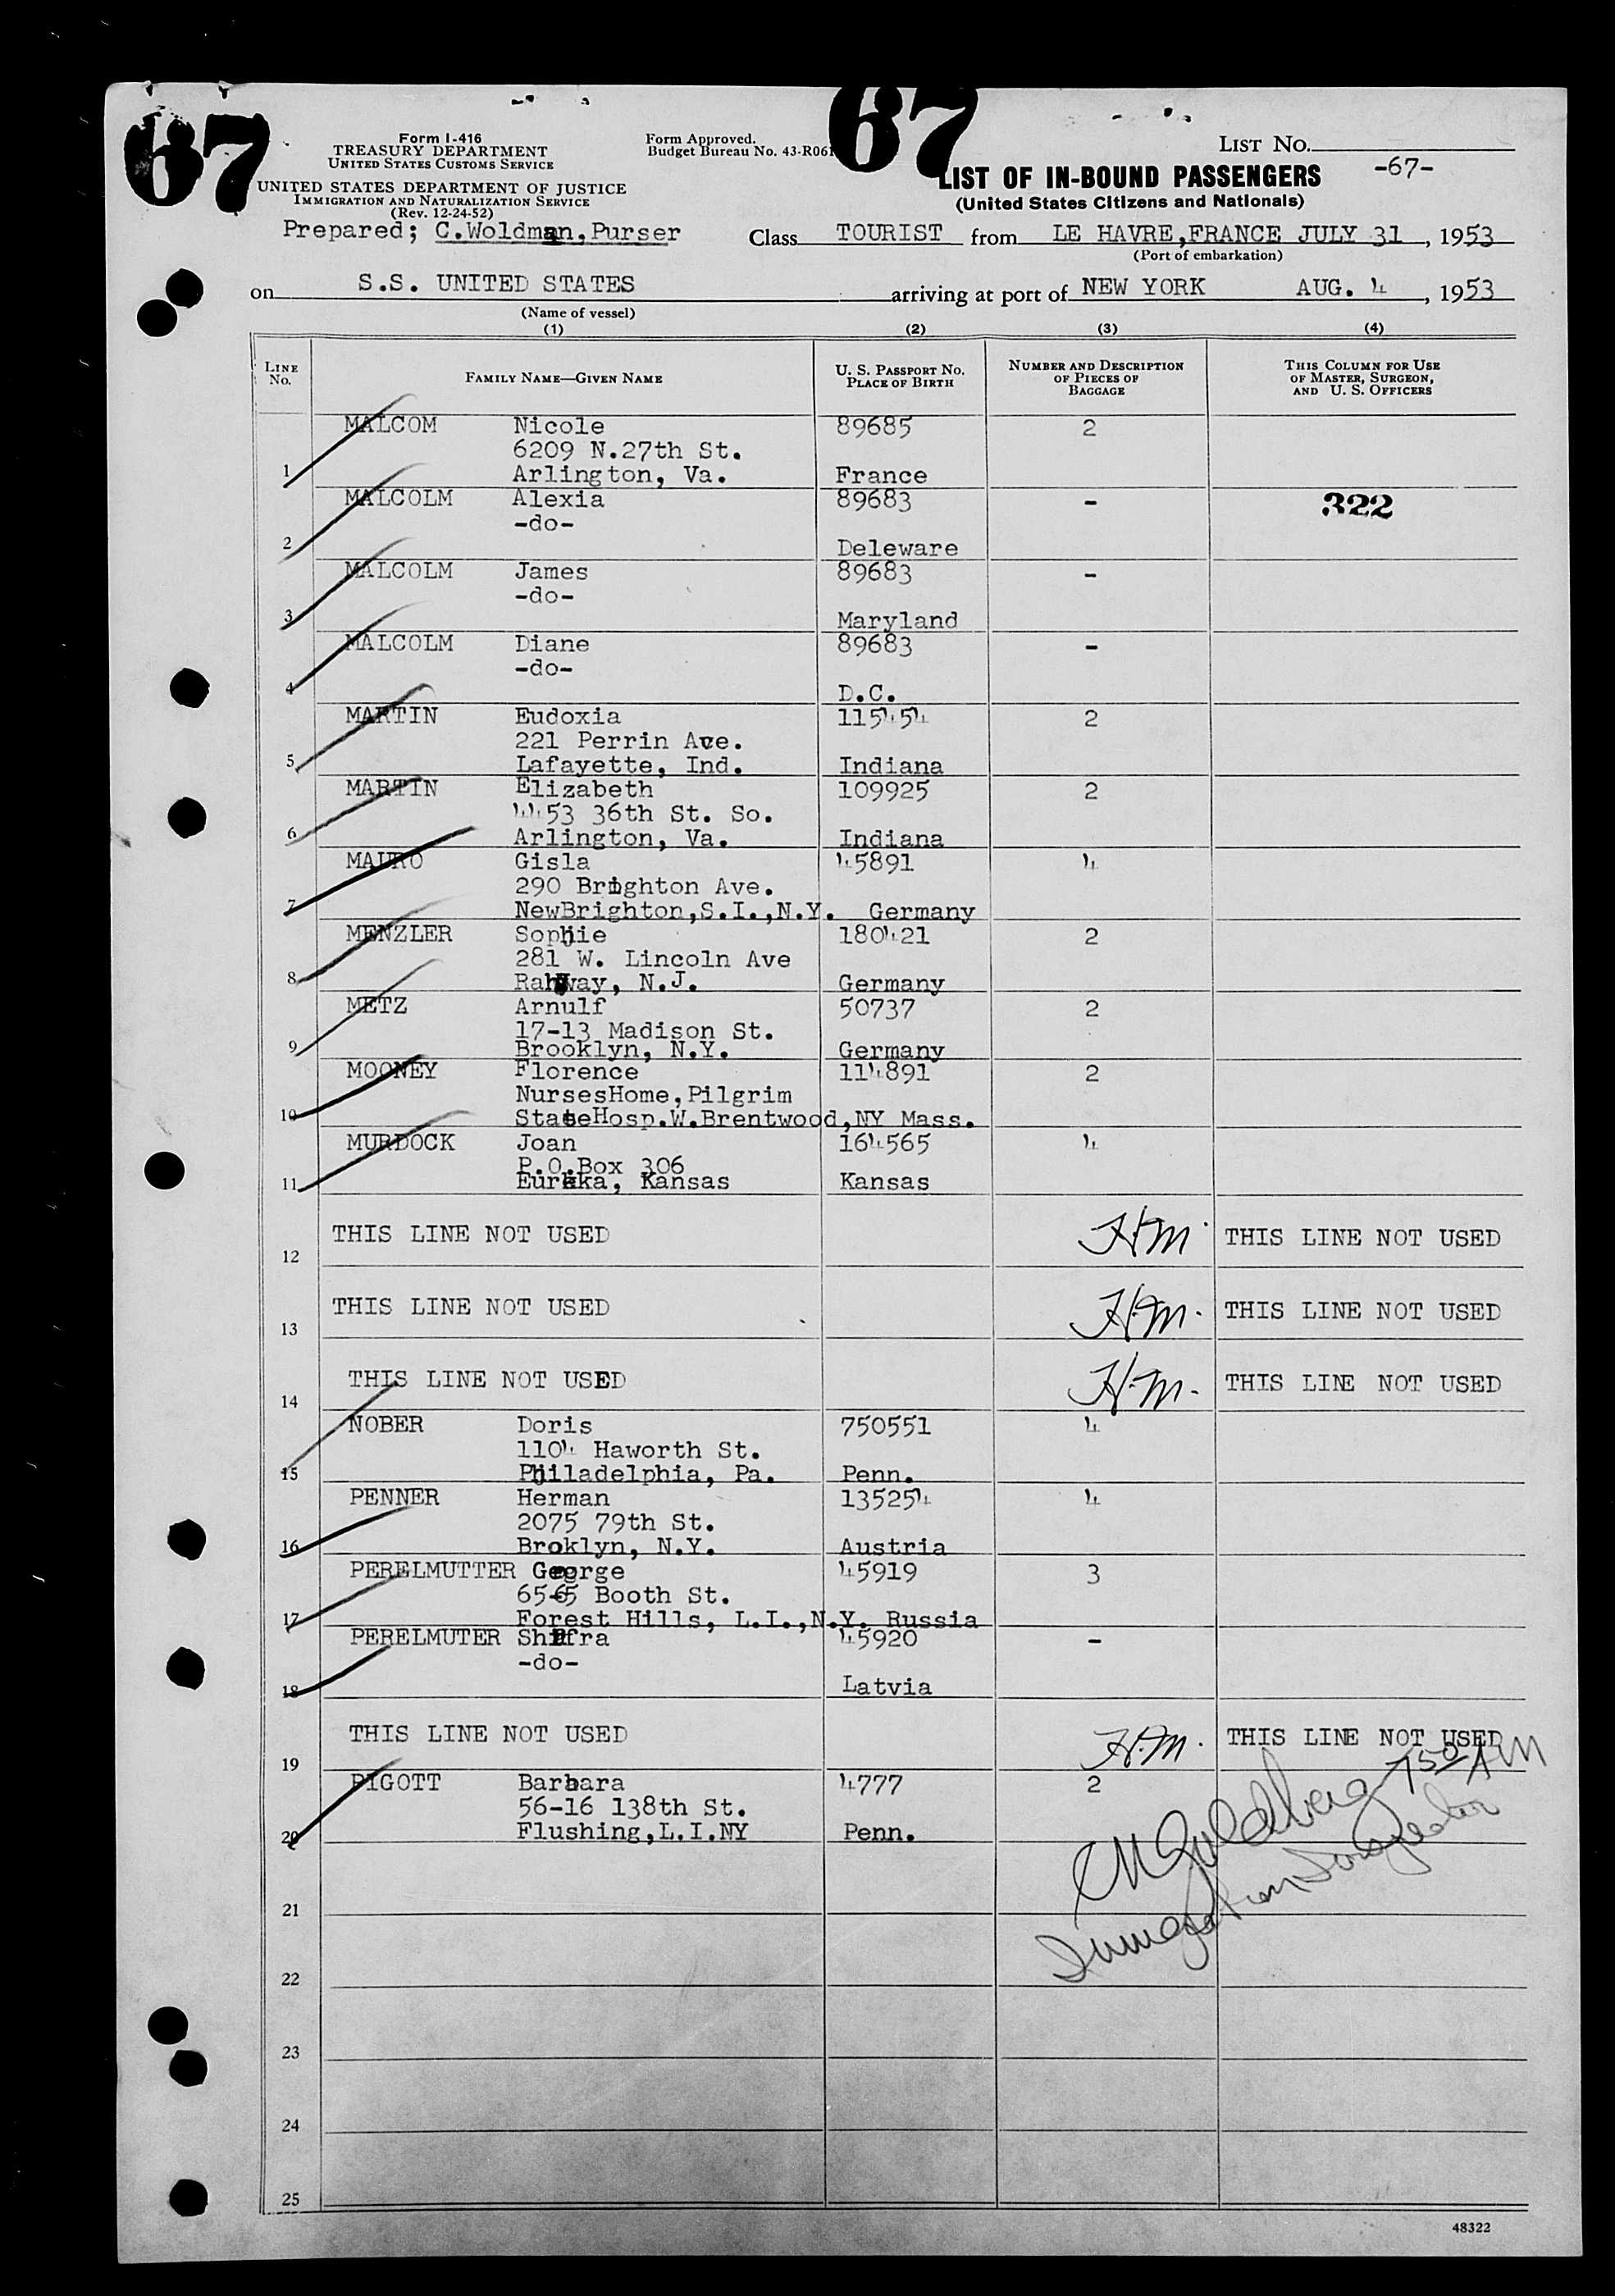 67
67
Form I-416
TREASURY DEPARTMENT
UNITED STATES CUSTOMS SERVICE
UNITED STATES DEPARTMENT OF JUSTICE
IMMIGRATION AND NATURALIZATION SERVICE
(Rev. 12-24-52)
Form Approved.
Budget Bureau No. 43-R061
LIST NO.
-67-
LIST OF IN-BOUND PASSENGERS
(United States Citizens and Nationals)
Prepared; C.Woldman,Purser
Class TOURIST from LE HAVRE,FRANCE JULY 31, 1953
(Port of embarkation)
on S.S. UNITED STATES arriving at port of NEW YORK AUG. 4, 1953
(Name of vessel)
(1) (2) (3) (4)
LINE NO. FAMILY NAME—GIVEN NAME U. S. PASSPORT NO. PLACE OF BIRTH NUMBER AND DESCRIPTION OF PIECES OF BAGGAGE THIS COLUMN FOR USE OF MASTER, SURGEON, AND U. S. OFFICERS
MALCOM Nicole 89685 2
6209 N.27th St.
1 Arlington, Va. France
MALCOLM Alexia 89683 - 322
-do-
2 Deleware
MALCOLM James 89683 -
-do-
3 Maryland
MALCOLM Diane 89683 -
-do-
4 D.C.
MARTIN Eudoxia 115454 2
221 Perrin Ave.
5 Lafayette, Ind. Indiana
MARTIN Elizabeth 109925 2
4453 36th St. So.
6 Arlington, Va. Indiana
MAURO Gisla 45891 4
290 Brighton Ave.
7 NewBrighton,S.I.,N.Y. Germany
MENZLER Sophie 180421 2
281 W. Lincoln Ave
8 Rahway, N.J. Germany
METZ Arnulf 50737 2
17-13 Madison St.
9 Brooklyn, N.Y. Germany
MOONEY Florence 114891 2
NursesHome,Pilgrim
10 StateHosp.W.Brentwood,NY Mass.
MURDOCK Joan 164565 4
P.O.Box 306
11 Eureka, Kansas Kansas
12 THIS LINE NOT USED H.M. THIS LINE NOT USED
13 THIS LINE NOT USED H.M. THIS LINE NOT USED
14 THIS LINE NOT USED H.M. THIS LINE NOT USED
NOBER Doris 750551 4
1104 Haworth St.
15 Philadelphia, Pa. Penn.
PENNER Herman 135254 4
2075 79th St.
16 Broklyn, N.Y. Austria
PERELMUTTER George 45919 3
6565 Booth St.
17 Forest Hills, L.I.,N.Y. Russia
PERELMUTER Shifra 45920 -
-do-
18 Latvia
19 THIS LINE NOT USED H.M. THIS LINE NOT USED
750 AM
PIGOTT Barbara 4777 2
56-16 138th St.
20 Flushing,L.I.NY Penn.
CM Goldberg
Immigration Inspector
21
22
23
24
25
48322